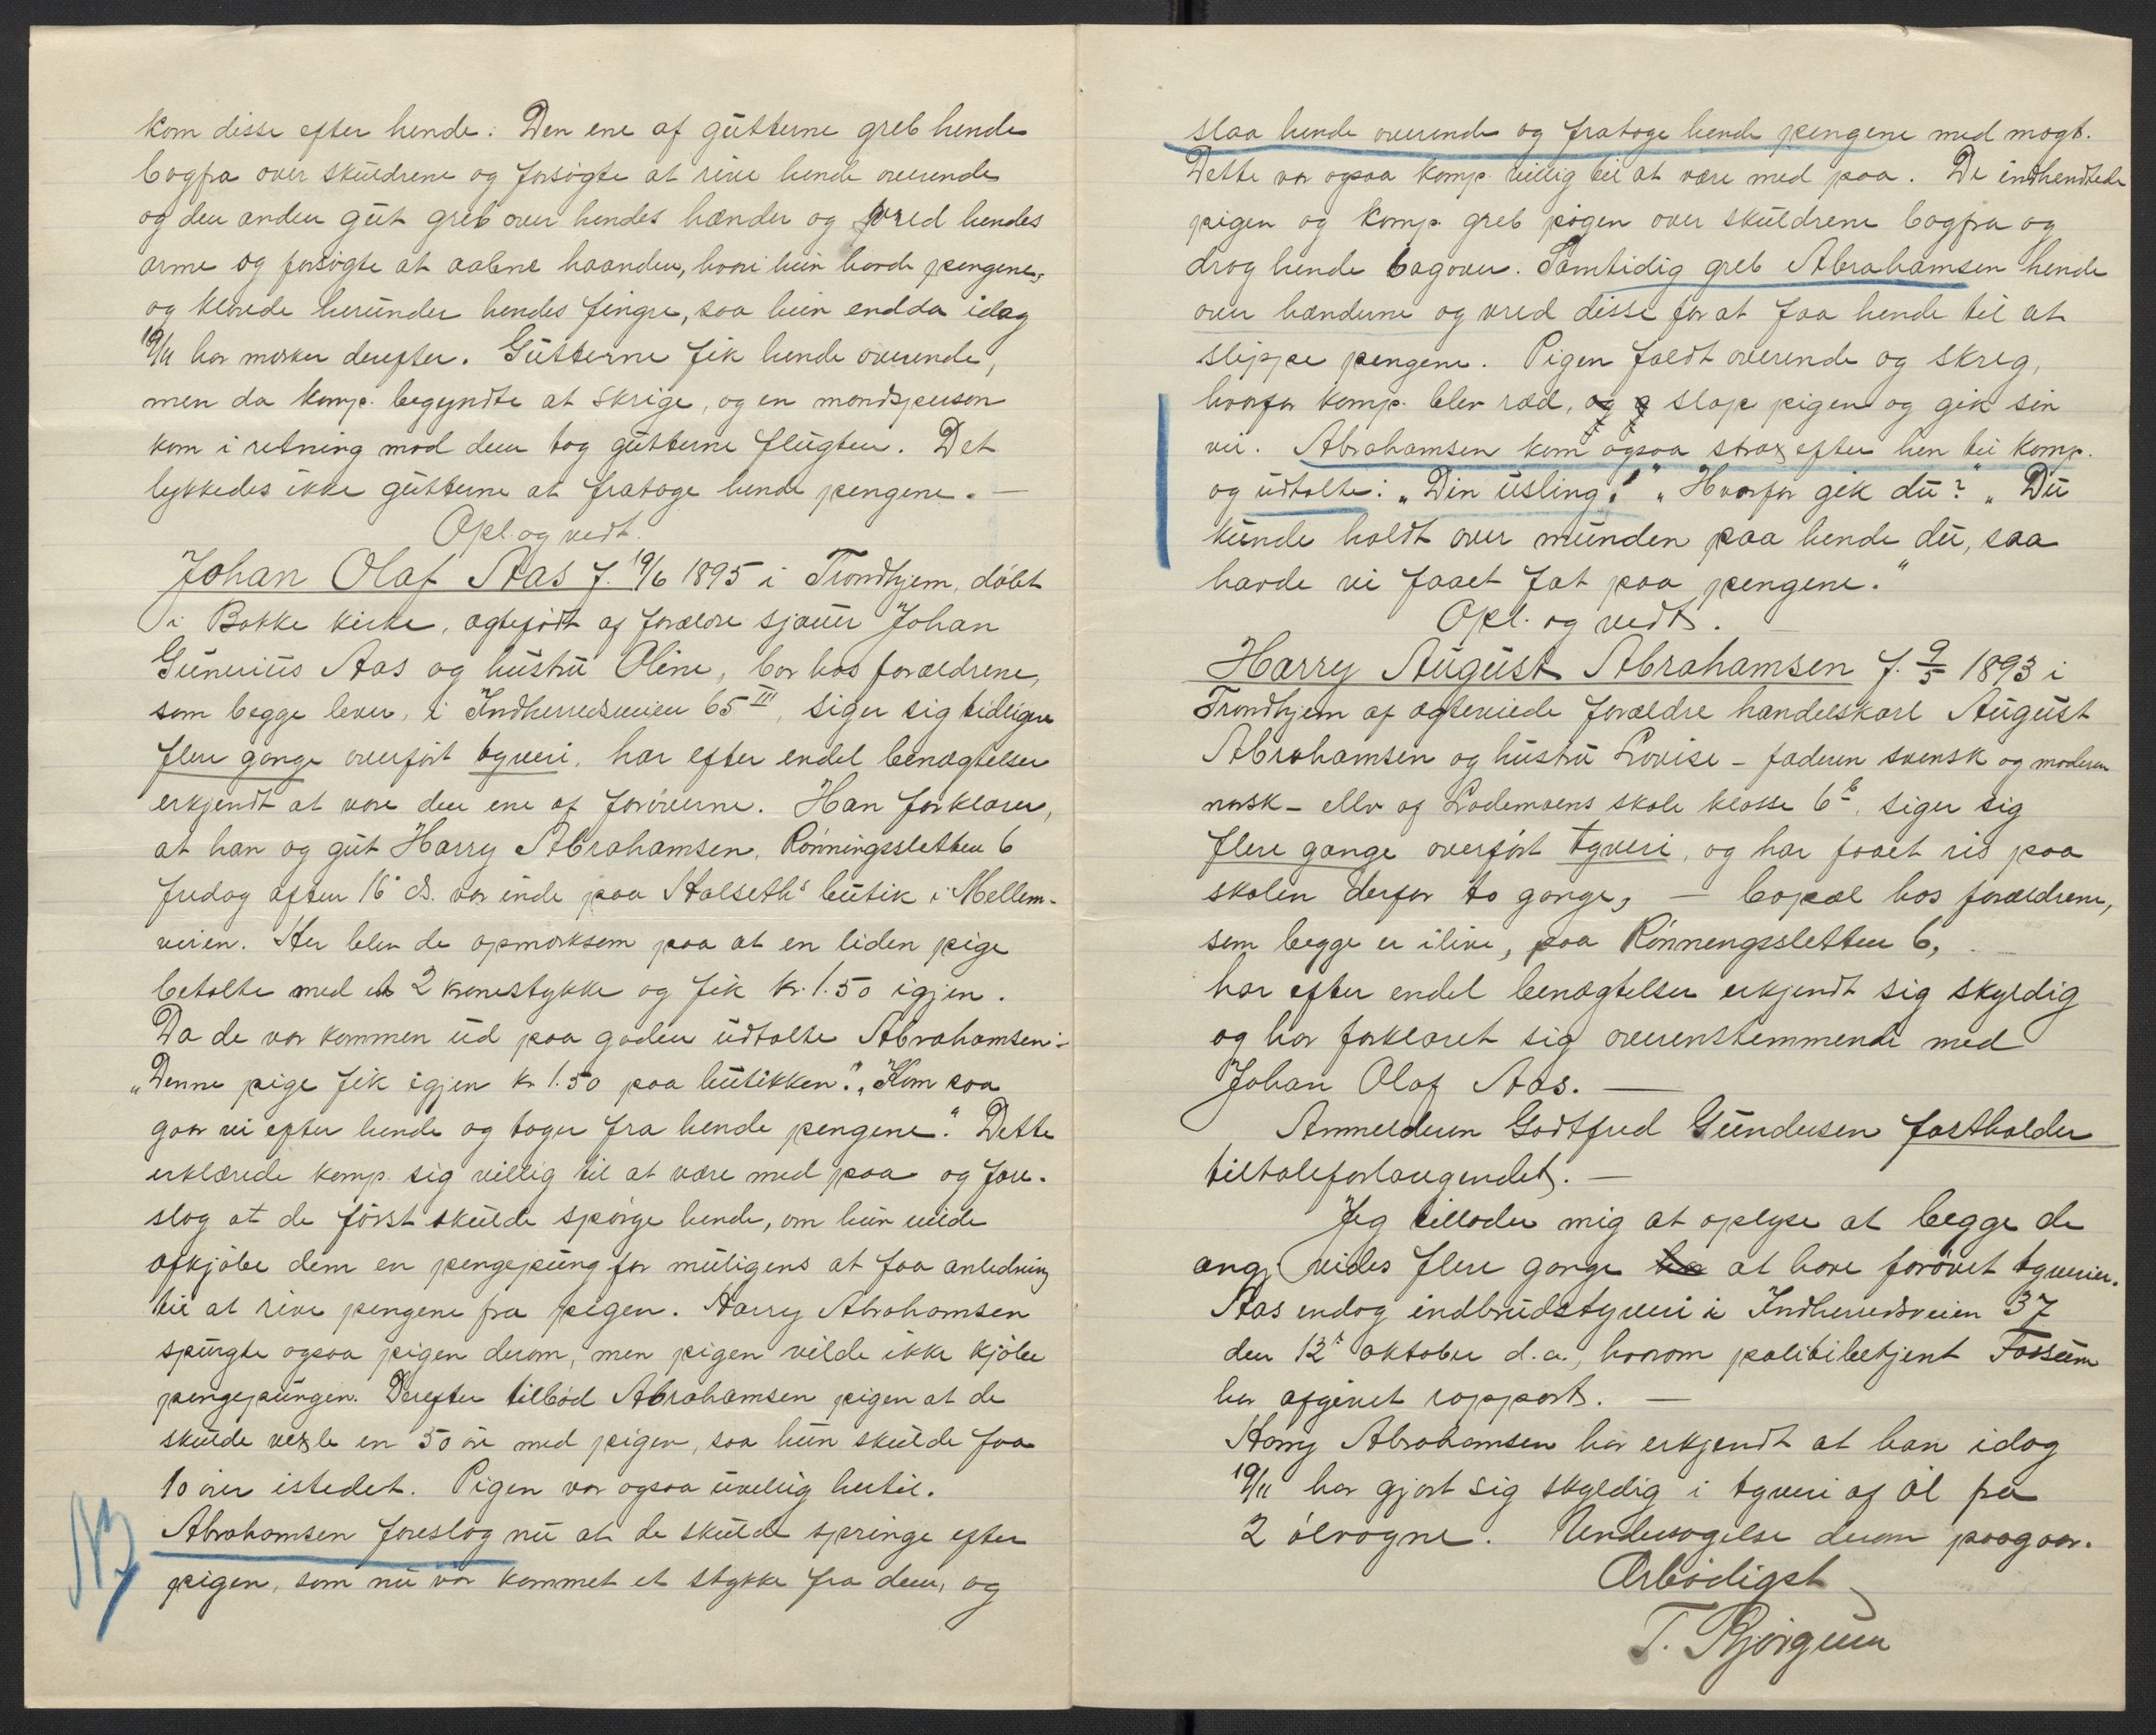 kom disse efter hende. Den ene af gutterne greb hende
bagfra over skuldrene og forsøgte at rive hende overende
og den anden gut greb over hendes hænder og vred hendes
arme og forsøgte at aabne haanden, hvori hun havde pengene,
og klorede herunder hendes fingre, saa hun endda idag
19/11 har mærker derefter. Gutterne fik hende overende,
men da komp. begyndte at skrige, og en mandsperson
kom i retning mod dem tog gutterne flugten. Det
lykkedes ikke gutterne at fratage hende pengene. —
Opl. og vedt.
Johan Olaf Aas f. 19/6 1895 i Trondhjem, døbt
i Bakke kirke, ægtefødt af forældre sjauer Johan
Gunerius Aas og hustru Oline, bor hos forældrene,
som begge lever, i Indherredsveien 65 III, siger sig tidligere
flere gange overført tyveri, har efter endel benægtelser
erkjendt at være den ene af forøverne. Han forklarer,
at han og gut Harry Abrahamsen, Rønningssletten 6
fredag aften 16' ds. var inde paa Halseth's butik i Mellem-
veien. Her blev de opmerksom paa at en liden pige
betalte med et 2 kronestykke og fik kr. 1.50 igjen.
Da de var kommen ud paa gaden udtalte Abrahamsen:-
„Denne pige fik igjen kr 1.50 paa butikken." „Kom saa
gaar vi efter hende og tager fra hende pengene." Dette
erklærede komp. sig villig til at være med paa og fore-
slog at de først skulde spørge hende, om hun vilde
afkjøbe dem en pengepung for muligens at faa anledning
til at rive pengene fra pigen. Harry Abrahamsen
spurgte ogsaa pigen derom, men pigen vilde ikke kjøbe
pengepungen. Derefter tilbød Abrahamsen pigen at de
skulde vexle en 50 øre med pigen, saa hun skulde faa
10 ører istedet. Pigen var ogsaa uvillig hertil.
Abrahamsen foreslog nu at de skulde springe efter
pigen, som nu var kommet et stykke fra dem, og
slaa hende overende og fratage hende pengene med magt.
Dette var ogsaa komp. villig til at være med paa. De indhendtede
pigen og komp. greb pigen over skuldrene bagfra og
drog hende bagover. Samtidig greb Abrahamsen hende
over hænderne og vred disse for at faa hende til at
slippe pengene. Pigen faldt overende og skreg,
hvorfor komp. blev ræd, og slap pigen og gik sin
vei. Abrahamsen kom ogsaa strax efter hen til komp.
og udtalte: „Din usling!" „Hvorfor gik du?" „Du
kunde holdt over munden paa hende du, saa
havde vi faaet fat paa pengene."
Opl. og vedt.
Harry August Abrahamsen f. 9/5 1893 i
Trondhjem af ægteviede forældre handelskarl August
Abrahamsen og hustru Lovise – faderen svensk og moderen
norsk – elev af Lademoens skole klasse 6 b, siger sig
flere gange overført tyveri, og har faaet ris paa
skolen derfor to gange, — bopæl hos forældrene,
som begge er ilive, paa Rønningssletten 6,
har efter endel benægtelser erkjendt sig skyldig
og har forklaret sig overenstemmende med
Johan Olaf Aas. —
Anmelderen Godtfred Gundersen fastholder
tiltaleforlangendet. —
Jeg tillader mig at oplyse at begge de
ang. vides flere gange at have forøvet tyverier.
Aas endog indbrudstyveri i Indherredsveien 37
den 12' oktober d.a., hvorom politibetjent Fossum
har afgivet rapport. —
Harry Abrahamsen har erkjendt at han idag
19/11 har gjort sig skyldig i tyveri af øl fra
2 ølvogne. Undersøgelse derom paagaar.
Ærbødigst
T. Bjørgum
NB